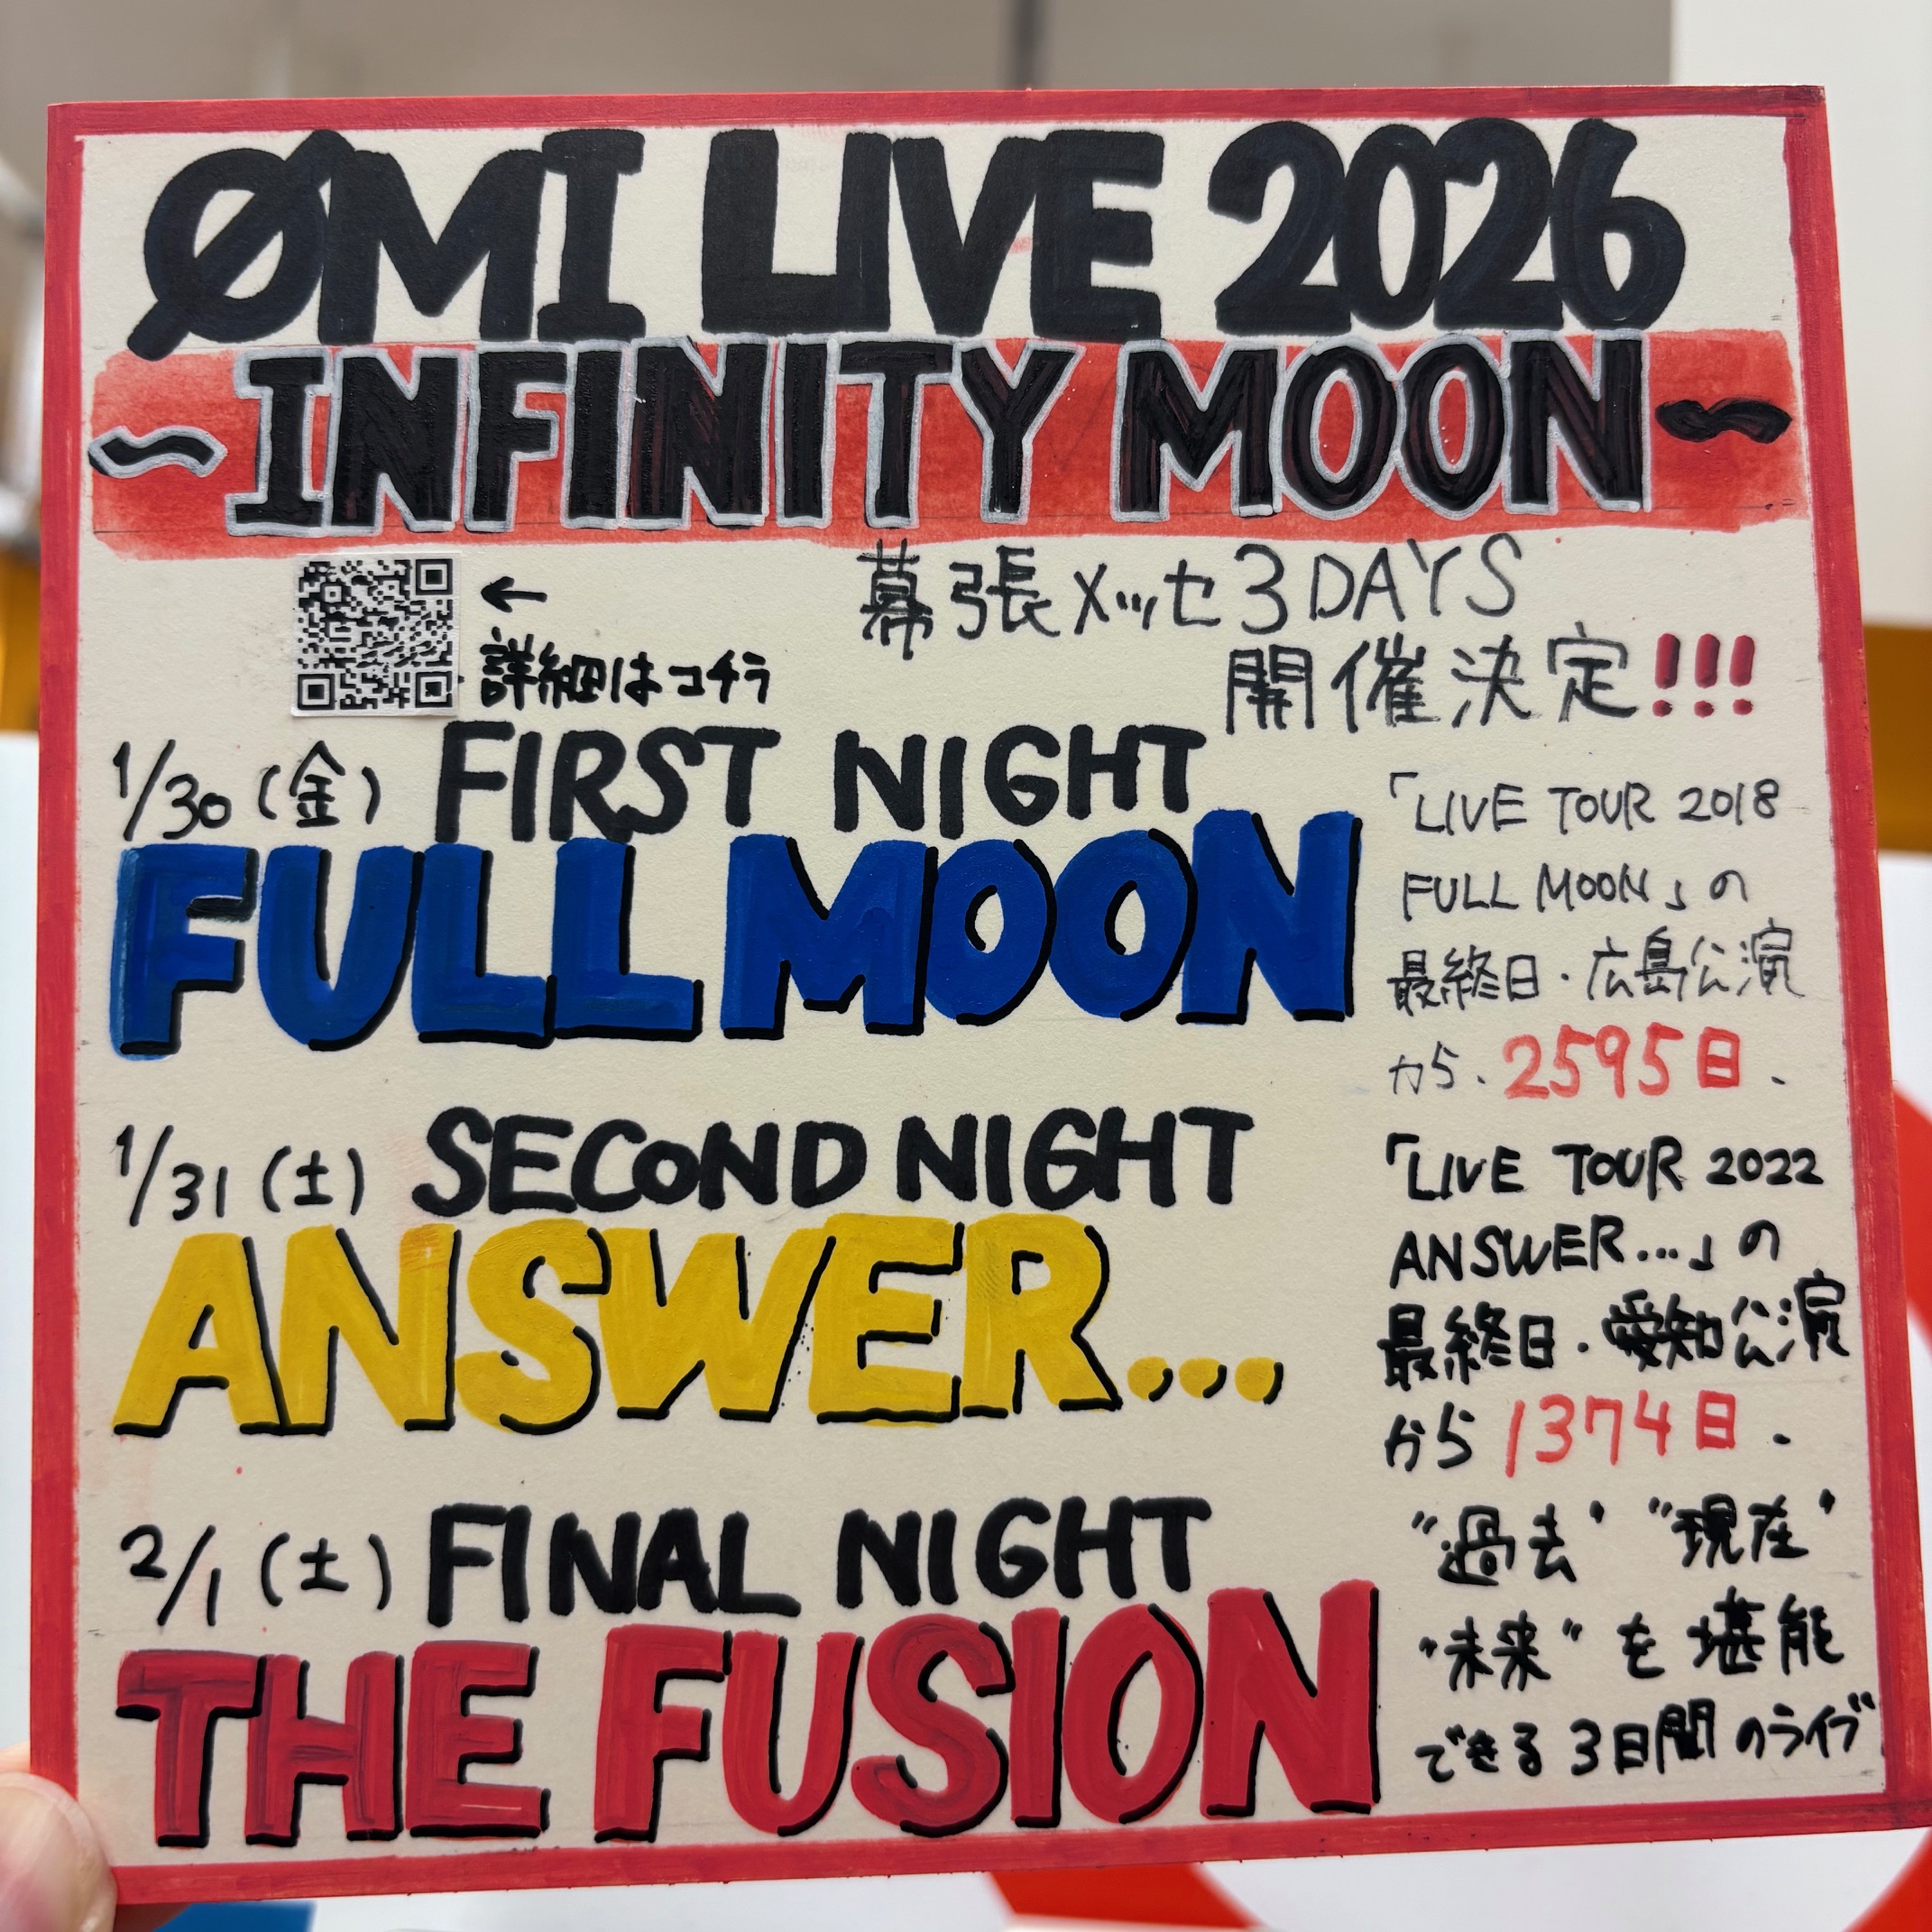 ØMI LIVE 2026
~INFINITY MOON~
幕張メッセ3DAYS
開催決定!!!
←
詳細はコチラ
1/30(金) FIRST NIGHT
FULL MOON
「LIVE TOUR 2018
FULL MOON」の
最終日・広島公演
から、2595日、
1/31(土) SECOND NIGHT
ANSWER...
「LIVE TOUR 2022
ANSWER...」の
最終日・愛知公演
から1374日、
2/1(土) FINAL NIGHT
THE FUSION
"過去" "現在"
"未来"を堪能
できる3日間のライブ